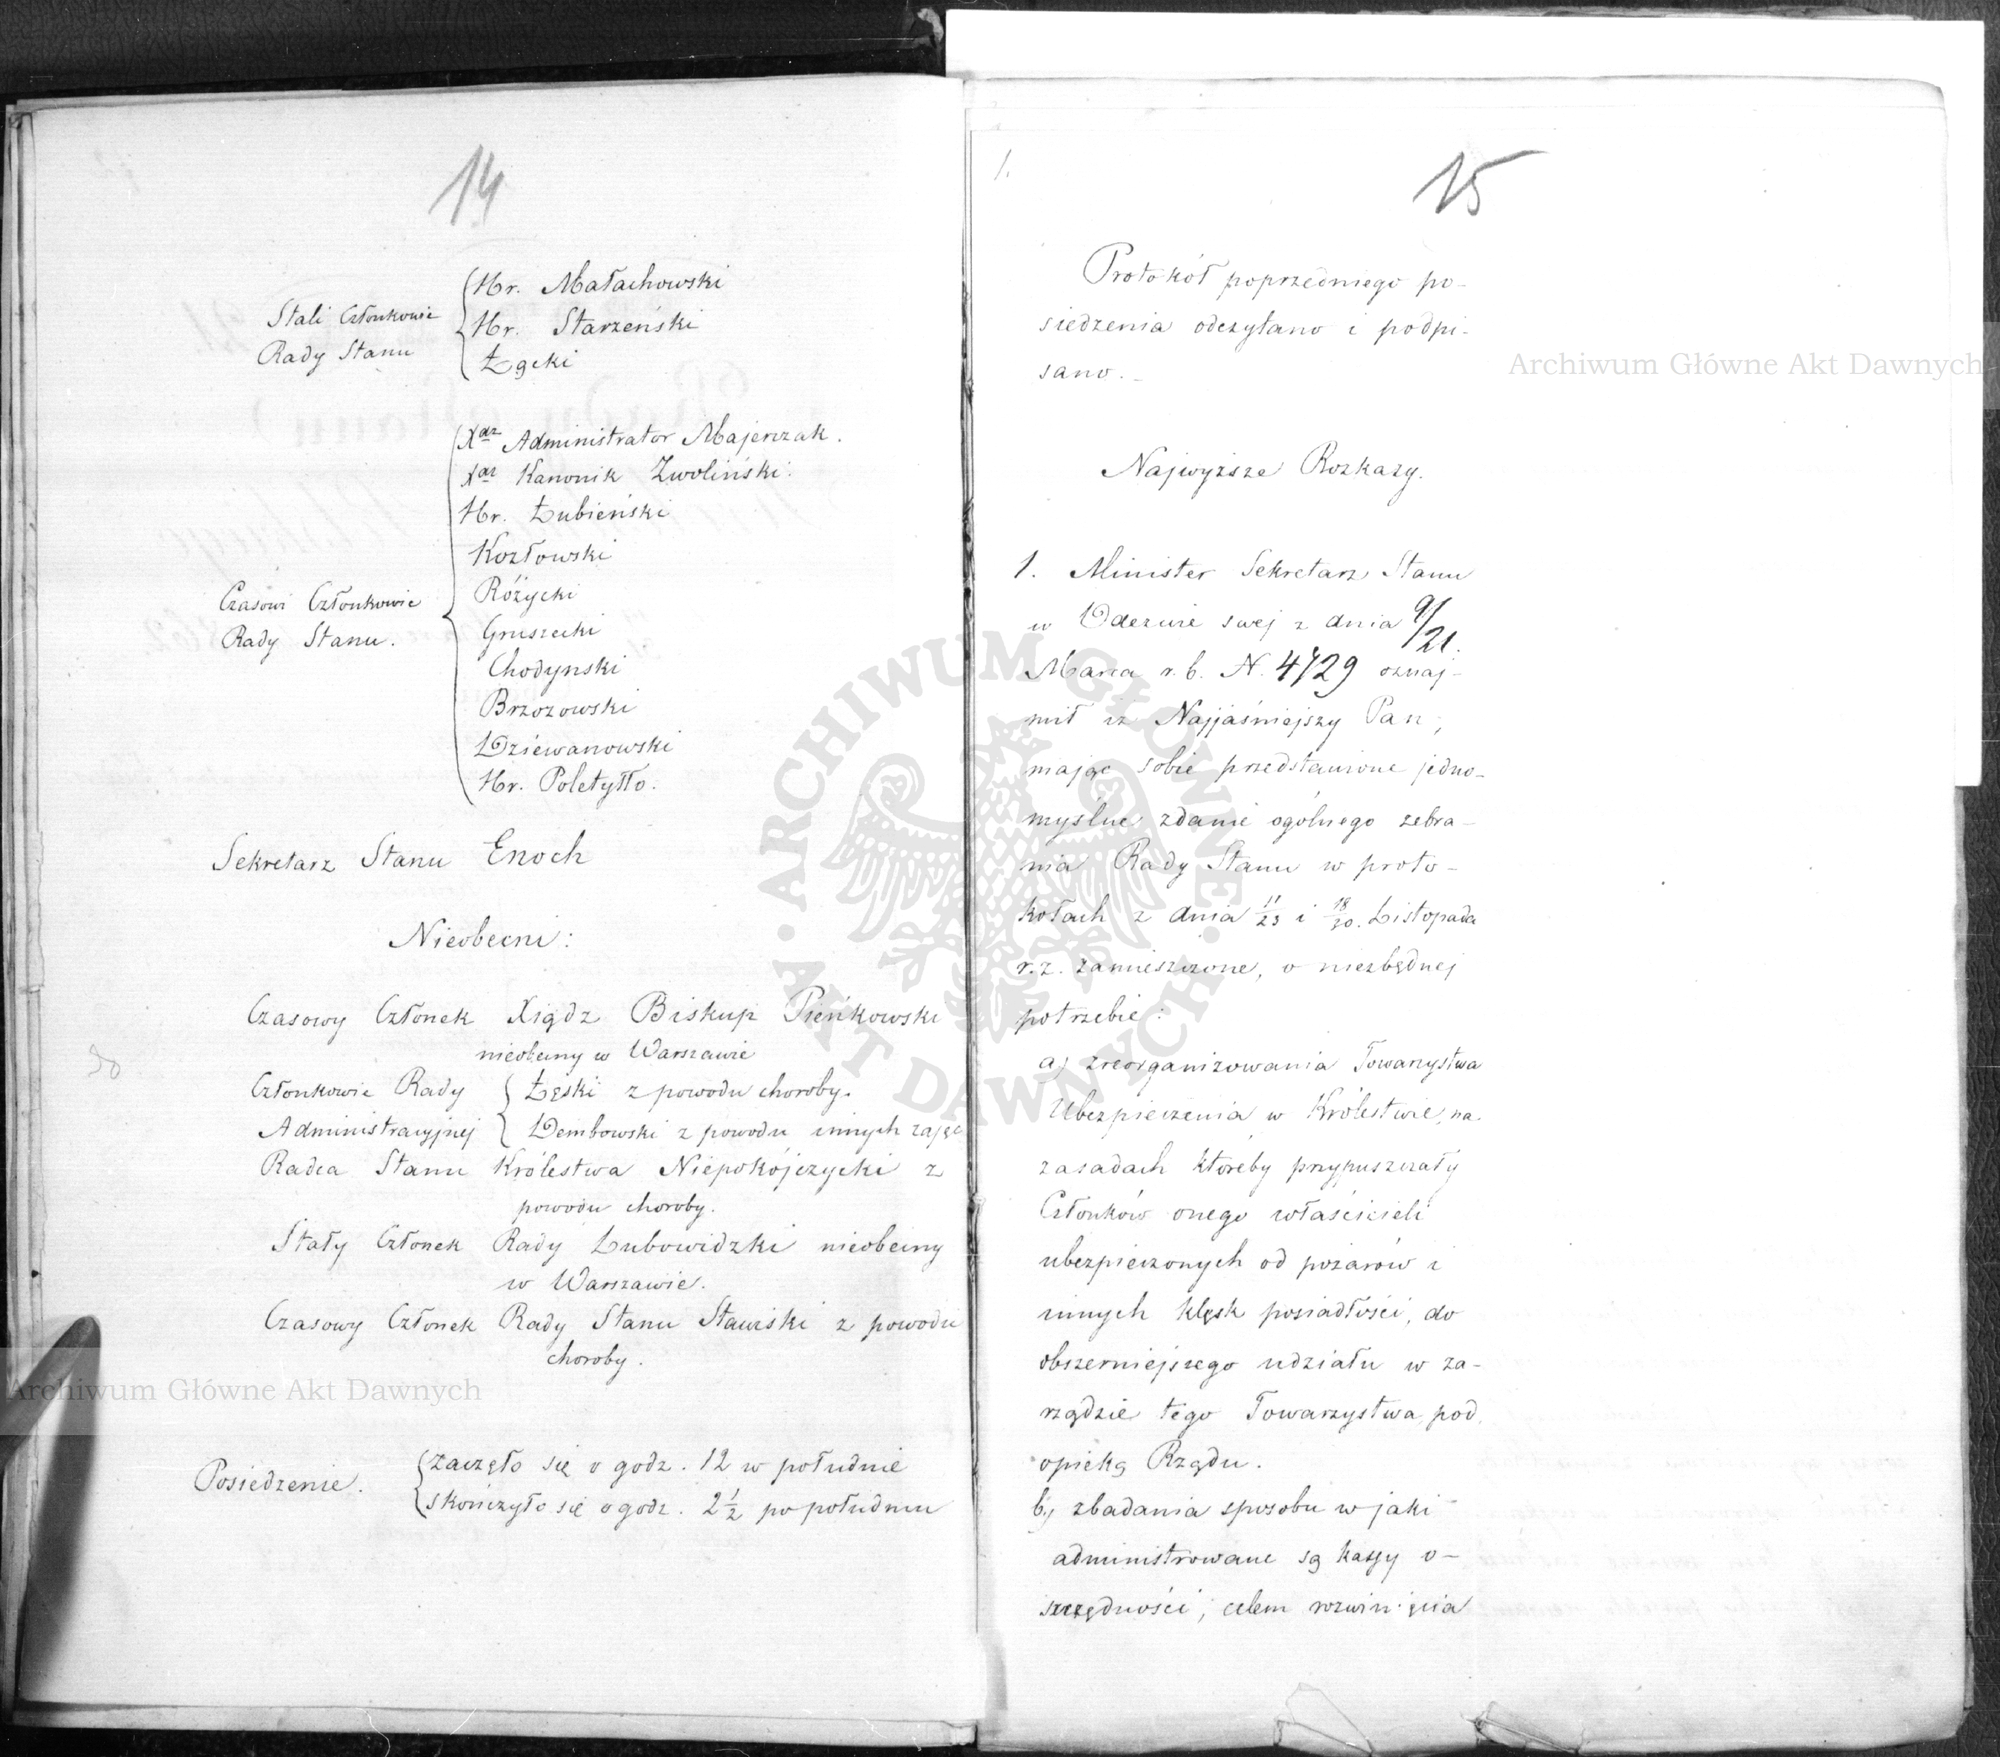 14
Stali Członkowie
Rady Stanu
Hr. Małachowski
Hr. Starzeński
Łęcki
Xdz Administrator Majerczak.
Xdz Kanonik Zwoliński.
Hr. Łubieński
Kozłowski
Czasowi Członkowie
Rady Stanu.
Różycki
Gruszecki
Chodyński
Brzozowski
Dziewanowski
Hr. Poletyłło.
Sekretarz Stanu Enoch
Nieobecni:
Czasowy Członek Xiądz Biskup Pieńkowski
nieobecny w Warszawie
Członkowie Rady
Administracyjnej
Łęski z powodu choroby.
Dembowski z powodu innych zajęć
Radca Stanu Królestwa Niepokójczycki z
powodu choroby.
Stały Członek Rady Łubowidzki nieobecny
w Warszawie.
Czasowy Członek Rady Stanu Stawiski z powodu
choroby.
Posiedzenie.
zaczęło się o godz. 12 w południe
skończyło się o godz. 2 1/2 po południu
15
1.
Protokół poprzedniego po-
siedzenia odczytano i podpi-
sano.
Najwyższe Rozkazy.
1. Minister Sekretarz Stanu
w Odezwie swej z dnia 9/21.
Marca r. b. N. 4729 oznaj-
mił iż Najjaśniejszy Pan,
mając sobie przedstawione jedno-
myślne zdanie ogólnego zebra-
nia Rady Stanu w proto-
kołach z dnia 11/23 i 18/30. Listopada
r. z. zamieszczone, o niezbędnej
potrzebie:
a) zreorganizowania Towarzystwa
Ubezpieczenia w Królestwie, na
zasadach któreby przypuszczały
Członków onego właścicieli
ubezpieczonych od pożarów i
innych klęsk posiadłości, do
obszerniejszego udziału w za-
rządzie tego Towarzystwa, pod
opieką Rządu.
b) zbadania sposobu w jaki
administrowane są kassy o-
szczędności, celem rozwinięcia
Archiwum Główne Akt Dawnych
Archiwum Główne Akt Dawnych
ARCHIWUM GŁÓWNE AKT DAWNYCH